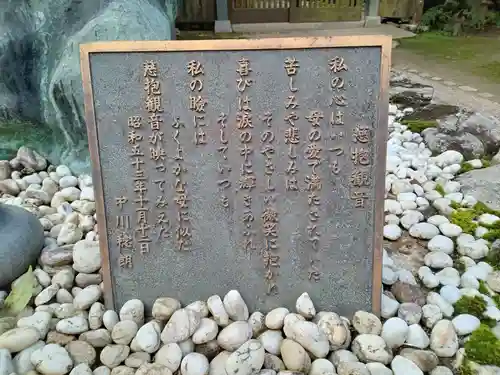 慈抱観音
私の心はいつも
母の愛で満たされていた
苦しみや悲しみは
そのやさしい微笑に抱かれ
喜びは涙の中に輝きあふれ
そしていつも
私の瞼には
ふくよかな母に似た
慈抱観音が映ってみえた
昭和五十三年十月十二日
中川